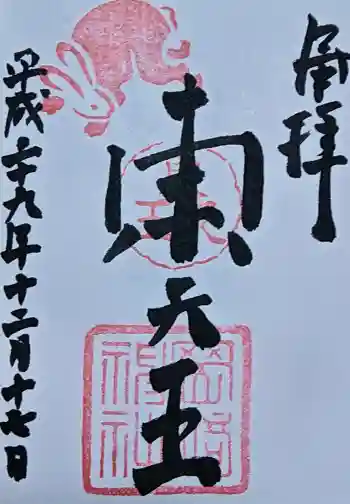 奉拝
東天王
岡崎神社
平成二十九年十二月十七日